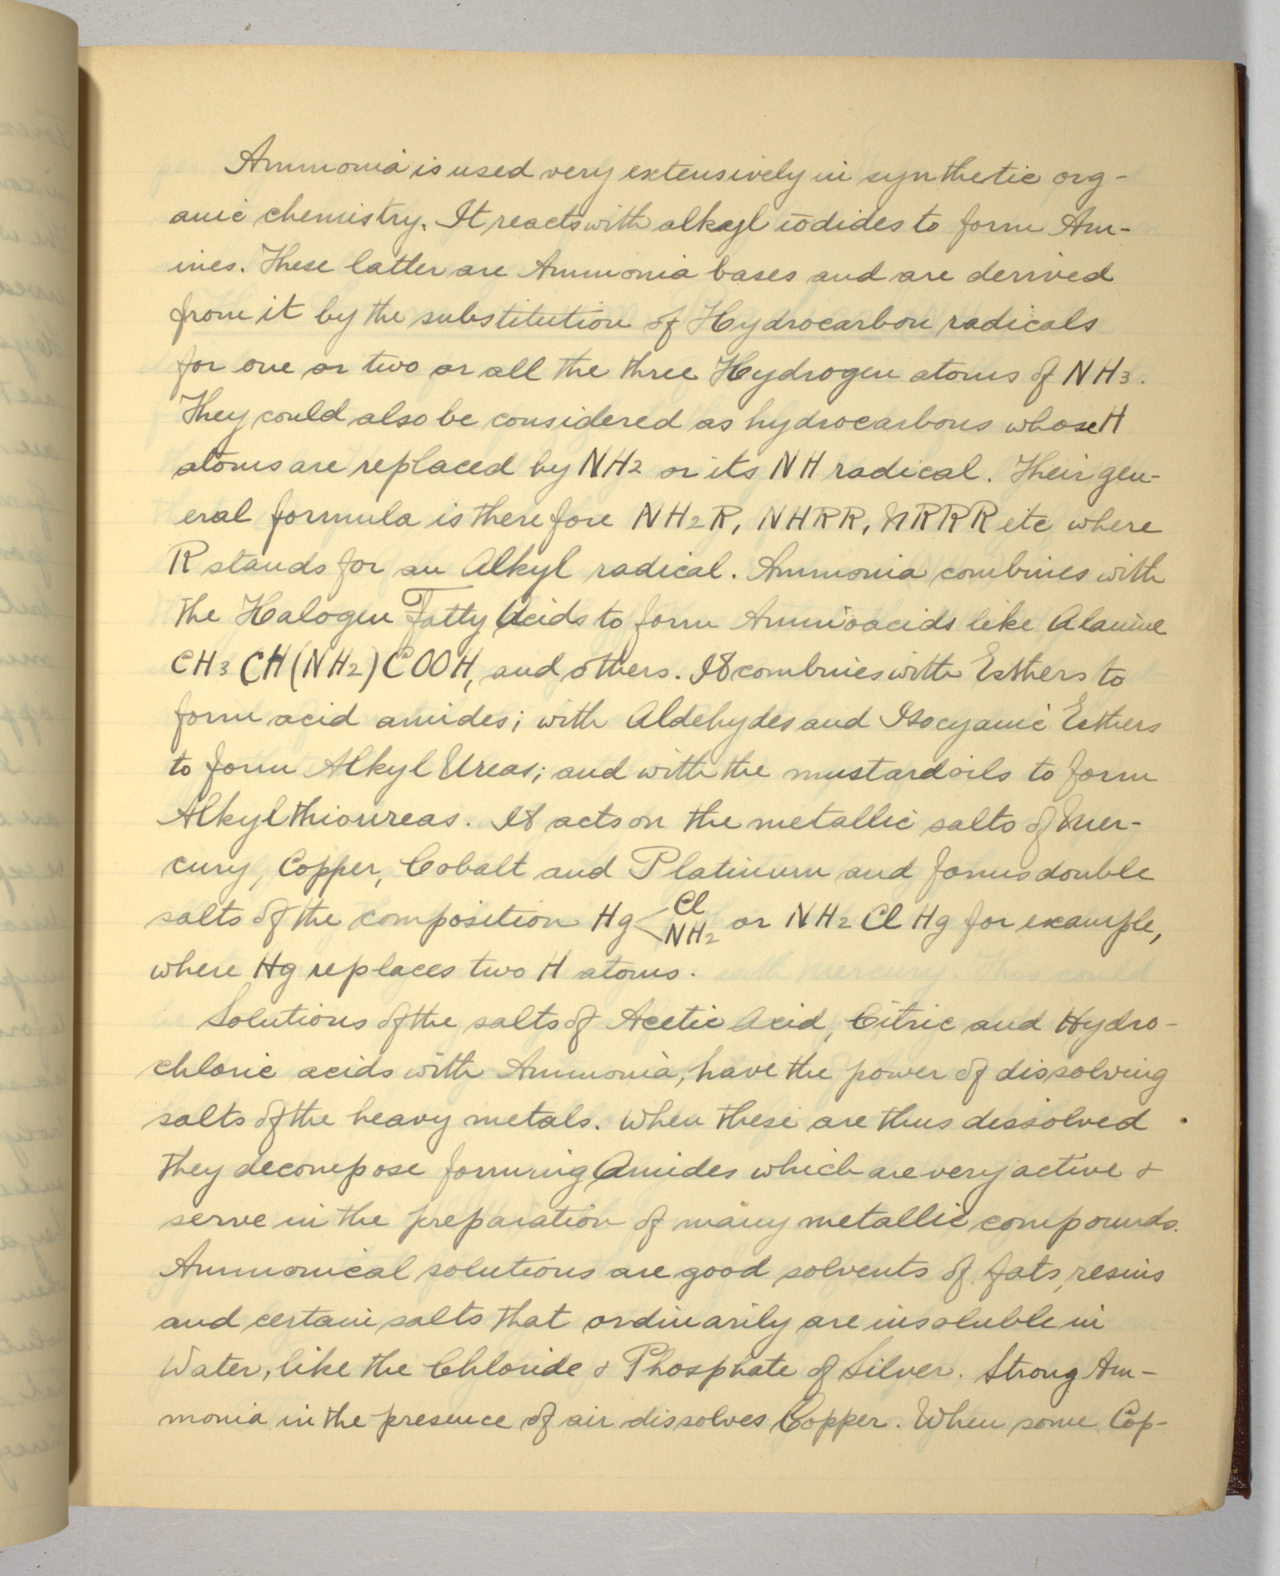 Ammonia is used very extensively in synthetic org-
anic chemistry. It reacts with alkayl iodides to form Am-
ines. These latter are Ammonia bases and are derived
from it by the substitution of Hydrocarbon radicals
for one or two or all the three Hydrogen atoms of NH3.
They could also be considered as hydrocarbons whose H
atoms are replaced by NH2 or its NH radical. Their gen-
eral formula is therefore NH2R, NHRR, NRRR etc where
R stands for an Alkyl radical. Ammonia combines with
the Halogen Fatty Acids to form Aminoacids like Alanine
CH3 CH(NH2)COOH, and others. It combines with Esthers to
form acid amides; with Aldehydes and Isocyanic Esthers
to form Alkyl Ureas; and with the mustard oils to form
Alkylthioureas. It acts on the metallic salts of Mer-
cury, Copper, Cobalt and Platinum and forms double
salts of the composition Hg<Cl NH2 or NH2ClHg for example,
where Hg replaces two H atoms.
Solutions of the salts of Acetic Acid, Citric and Hydro-
chloric acids with Ammonia, have the power of dissolving
salts of the heavy metals. When these are thus dissolved
they decompose forming Amides which are very active &
serve in the preparation of many metallic compounds.
Ammonical solutions are good solvents of fats, resins
and certain salts that ordinarily are insoluble in
Water, like the Chloride & Phosphate of Silver. Strong Am-
monia in the presence of air dissolves Copper. When some Cop-